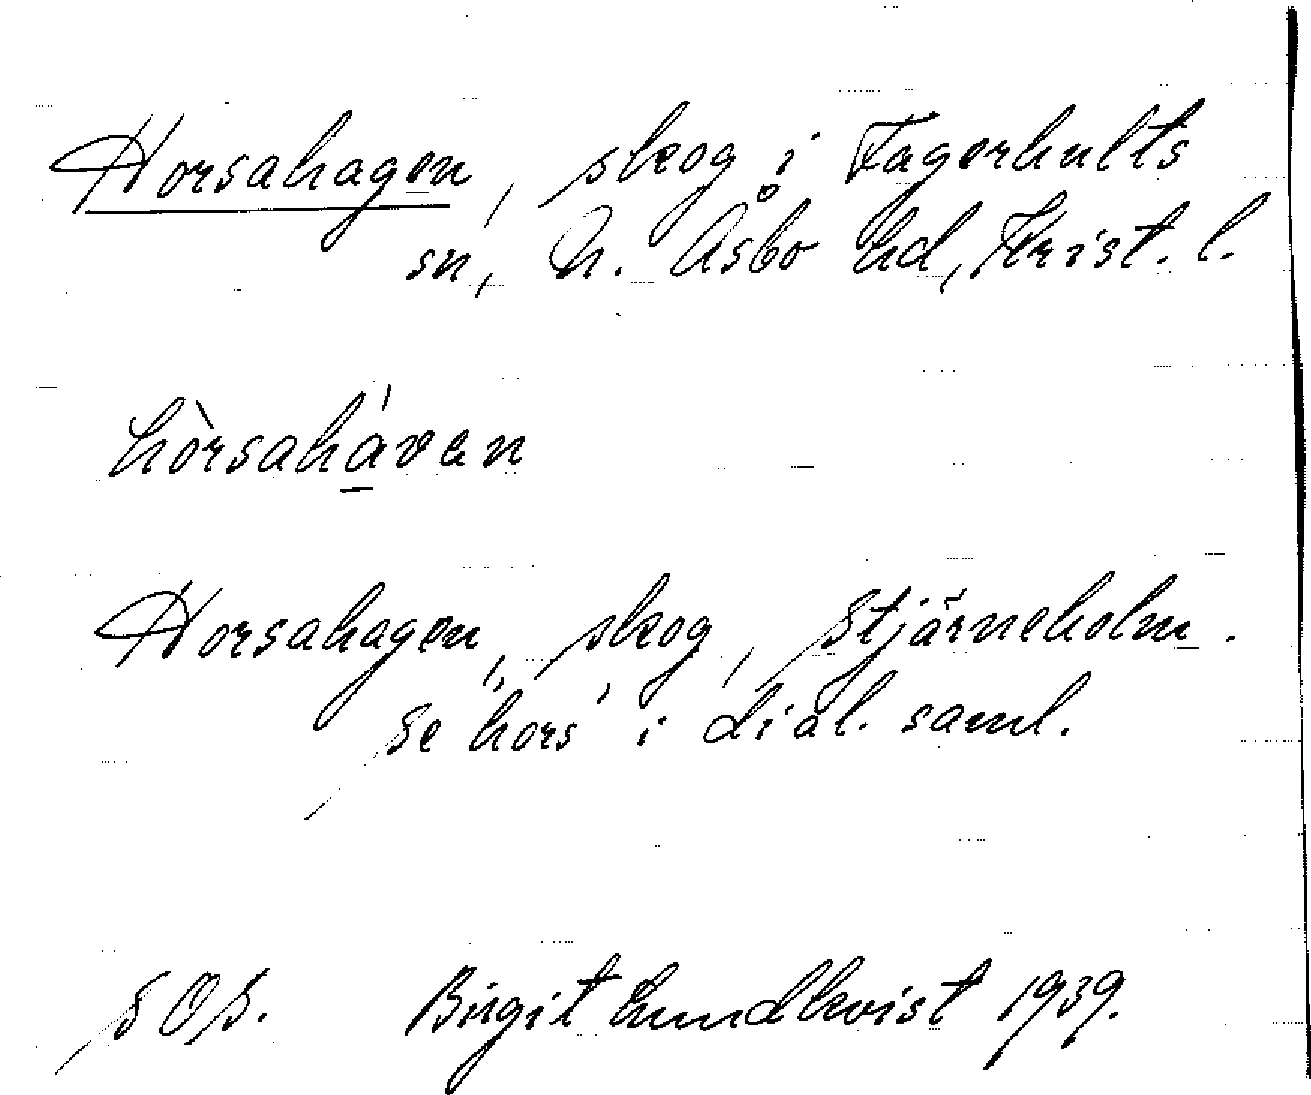 Horsahagen, skog i Fagerhults
sn, N. Åsbo hd, Krist. l.
hòrsahávan
Horsahagen, skog, Stjärneholm.
Se "hors" i dial. saml.
Birgit Lundkvist 1939.